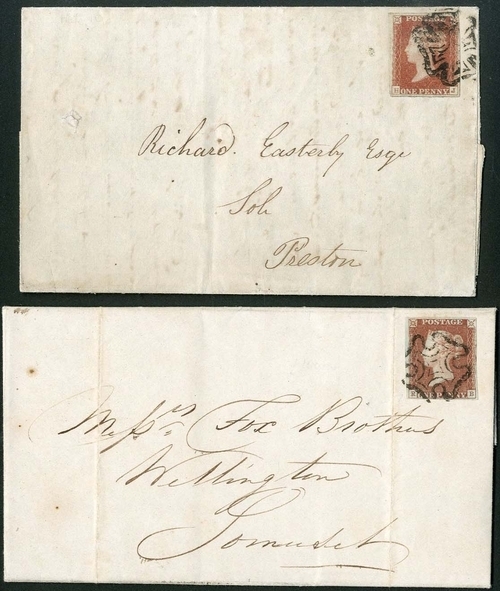 POSTAGE
ONE PENNY
Richard Easterby Esqe
Sol
Preston
POSTAGE
ONE PENNY
Messrs Fox Brothers
Wellington
Somerset